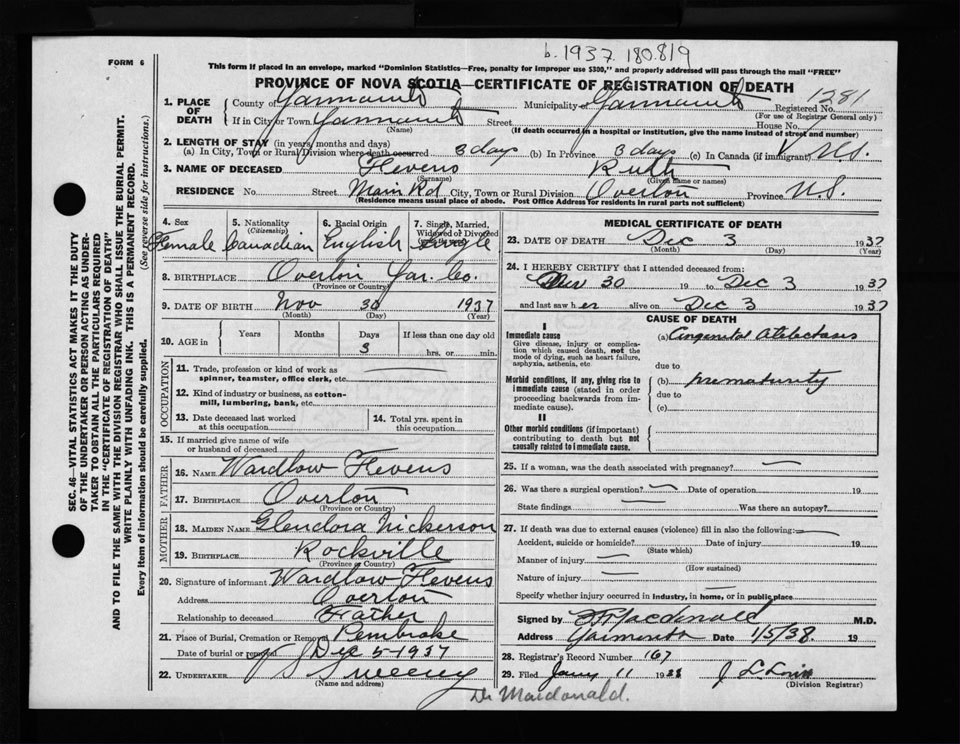 b. 1937. 180819
FORM 6
This form if placed in an envelope, marked "Dominion Statistics—Free, penalty for improper use $300," and properly addressed will pass through the mail "FREE"
PROVINCE OF NOVA SCOTIA—CERTIFICATE OF REGISTRATION OF DEATH
1. PLACE OF DEATH
County of Yarmouth Municipality of Yarmouth Registered No. 1281
(For use of Registrar General only)
If in City or Town Yarmouth Street House No.
(Name) (If death occurred in a hospital or institution, give name instead of street and number)
2. LENGTH OF STAY (in years, months and days)
(a) In City, Town or Rural Division where death occurred 3 days (b) In Province 3 days (c) In Canada (if immigrant)
3. NAME OF DECEASED Flevens Ruth
(Surname) (Given name or names)
RESIDENCE No. Street Main Rd City, Town or Rural Division Overton Province N.S.
(Residence means usual place of abode. Post Office Address for residents in rural parts not sufficient)
4. Sex Female
5. Nationality (Citizenship) Canadian
6. Racial Origin English
7. Single, Married, Widowed or Divorced Single
8. BIRTHPLACE Overton Yar. Co.
(Province or Country)
9. DATE OF BIRTH Nov 30 1937
(Month) (Day) (Year)
10. AGE in Years Months Days If less than one day old
3 hrs. or min.
OCCUPATION
11. Trade, profession or kind of work as spinner, teamster, office clerk, etc.
12. Kind of industry or business, as cotton-mill, lumbering, bank, etc.
13. Date deceased last worked at this occupation
14. Total yrs. spent in this occupation
15. If married give name of wife or husband of deceased
FATHER
16. NAME Wardlow Flevens
17. BIRTHPLACE Overton
(Province or Country)
MOTHER
18. MAIDEN NAME Glendora Nickerson
19. BIRTHPLACE Rockville
(Province or Country)
20. Signature of informant Wardlow Flevens
Address Overton
Relationship to deceased Father
21. Place of Burial, Cremation or Removal Pembroke
Date of burial or removal Dec 5 1937
22. UNDERTAKER Sweeny
(Name and address)
MEDICAL CERTIFICATE OF DEATH
23. DATE OF DEATH Dec 3 1937
(Month) (Day) (Year)
24. I HEREBY CERTIFY that I attended deceased from:
Nov 30 19 to Dec 3 1937
and last saw h er alive on Dec 3 1937
CAUSE OF DEATH
I
Immediate cause
Give disease, injury or complication which caused death, not the mode of dying, such as heart failure, asphyxia, asthenia, etc
(a) Congenital Atelectasis
due to
Morbid conditions, if any, giving rise to immediate cause (stated in order proceeding backwards from immediate cause).
(b) Prematurity
due to
(c)
II
Other morbid conditions (if important) contributing to death but not causally related to immediate cause.
25. If a woman, was the death associated with pregnancy?
26. Was there a surgical operation? Date of operation 19
State findings Was there an autopsy?
27. If death was due to external causes (violence) fill in also the following:
Accident, suicide or homicide? Date of injury 19
(State which)
Manner of injury
(How sustained)
Nature of injury
Specify whether injury occurred in industry, in home, or in public place
Signed by Macdonald M.D.
Address Yarmouth Date 1/5/38. 19
28. Registrar's Record Number 167
29. Filed Jany 11 1938
(Division Registrar)
Dr Macdonald.
SEC. 46—VITAL STATISTICS ACT MAKES IT THE DUTY
OF THE UNDERTAKER OR PERSON ACTING AS UNDER-
TAKER TO OBTAIN ALL THE PARTICULARS REQUIRED
IN THE "CERTIFICATE OF REGISTRATION OF DEATH"
AND TO FILE THE SAME WITH THE DIVISION REGISTRAR WHO SHALL ISSUE THE BURIAL PERMIT.
WRITE PLAINLY WITH UNFADING INK. THIS IS A PERMANENT RECORD.
Every item of information should be carefully supplied. (See reverse side for instructions.)